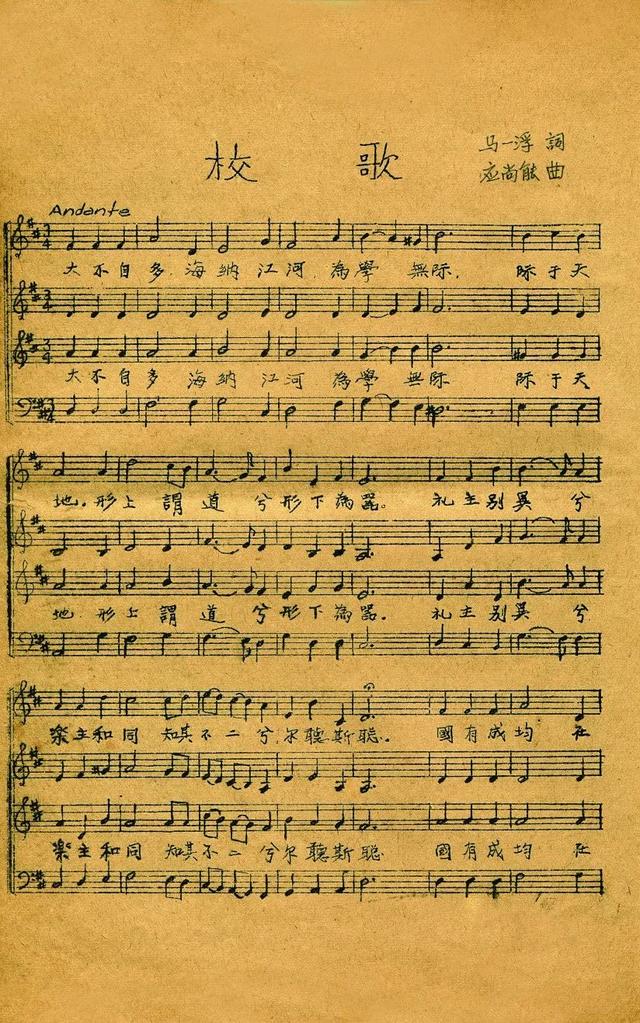 校 歌
马一浮 詞
应尚能 曲
Andante
大不自多 海纳江河 為學 無际. 际于天
大不自多 海纳江河 為學 無际 际于天
地. 形上 謂道 兮形下為器. 礼主别異 兮
地 形上 謂道 兮形下為器. 礼主别異 兮
樂主和同 知其不二 兮尔聽斯聪. 國有成均 在
樂主和同 知其不二 兮尔聽斯聪 國有成均 在